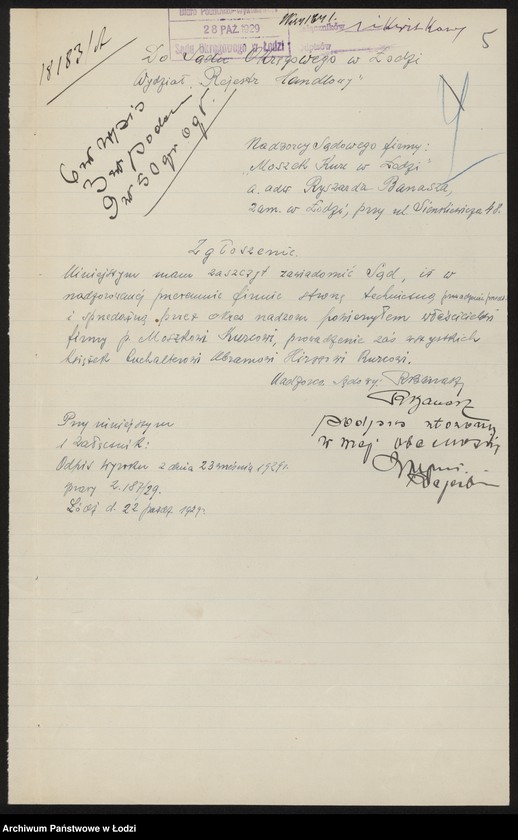 28 PAŹ. 1929
Sądu Okręgowego w Łodzi
5
18183/A
Do Sądu Okręgowego w Łodzi
Wydział "Rejestr Handlowy"
6 w wpis
3 w podan
9 w 50 gr. ogł.
Nadzorcy Sądowego firmy:
"Moszek Kurc w Łodzi"
a. adw Ryszarda Banasza,
zam. w Łodzi, przy ul. Sienkiewicza 48.
Zgłoszenie.
Niniejszym mam zaszczyt zawiadomić Sąd, iż w
nadzorowanej przezemnie firmie stronę techniczną
i sprzedażną przez okres nadzoru powierzyłem właścicielowi
firmy p. Moszkowi Kurcowi, prowadzenie zaś wszystkich
książek buchalterowi Abramowi Kurcowi.
Nadzorca Sądowy:
RBanasz
podpis złożony
w mej obecności
Przy niniejszym
1 załącznik:
Odpis wyroku z dnia 23 września 1929 r.
sprawy Z. 187/29.
Łódź d. 22 paźdz. 1929 r.
Archiwum Państwowe w Łodzi